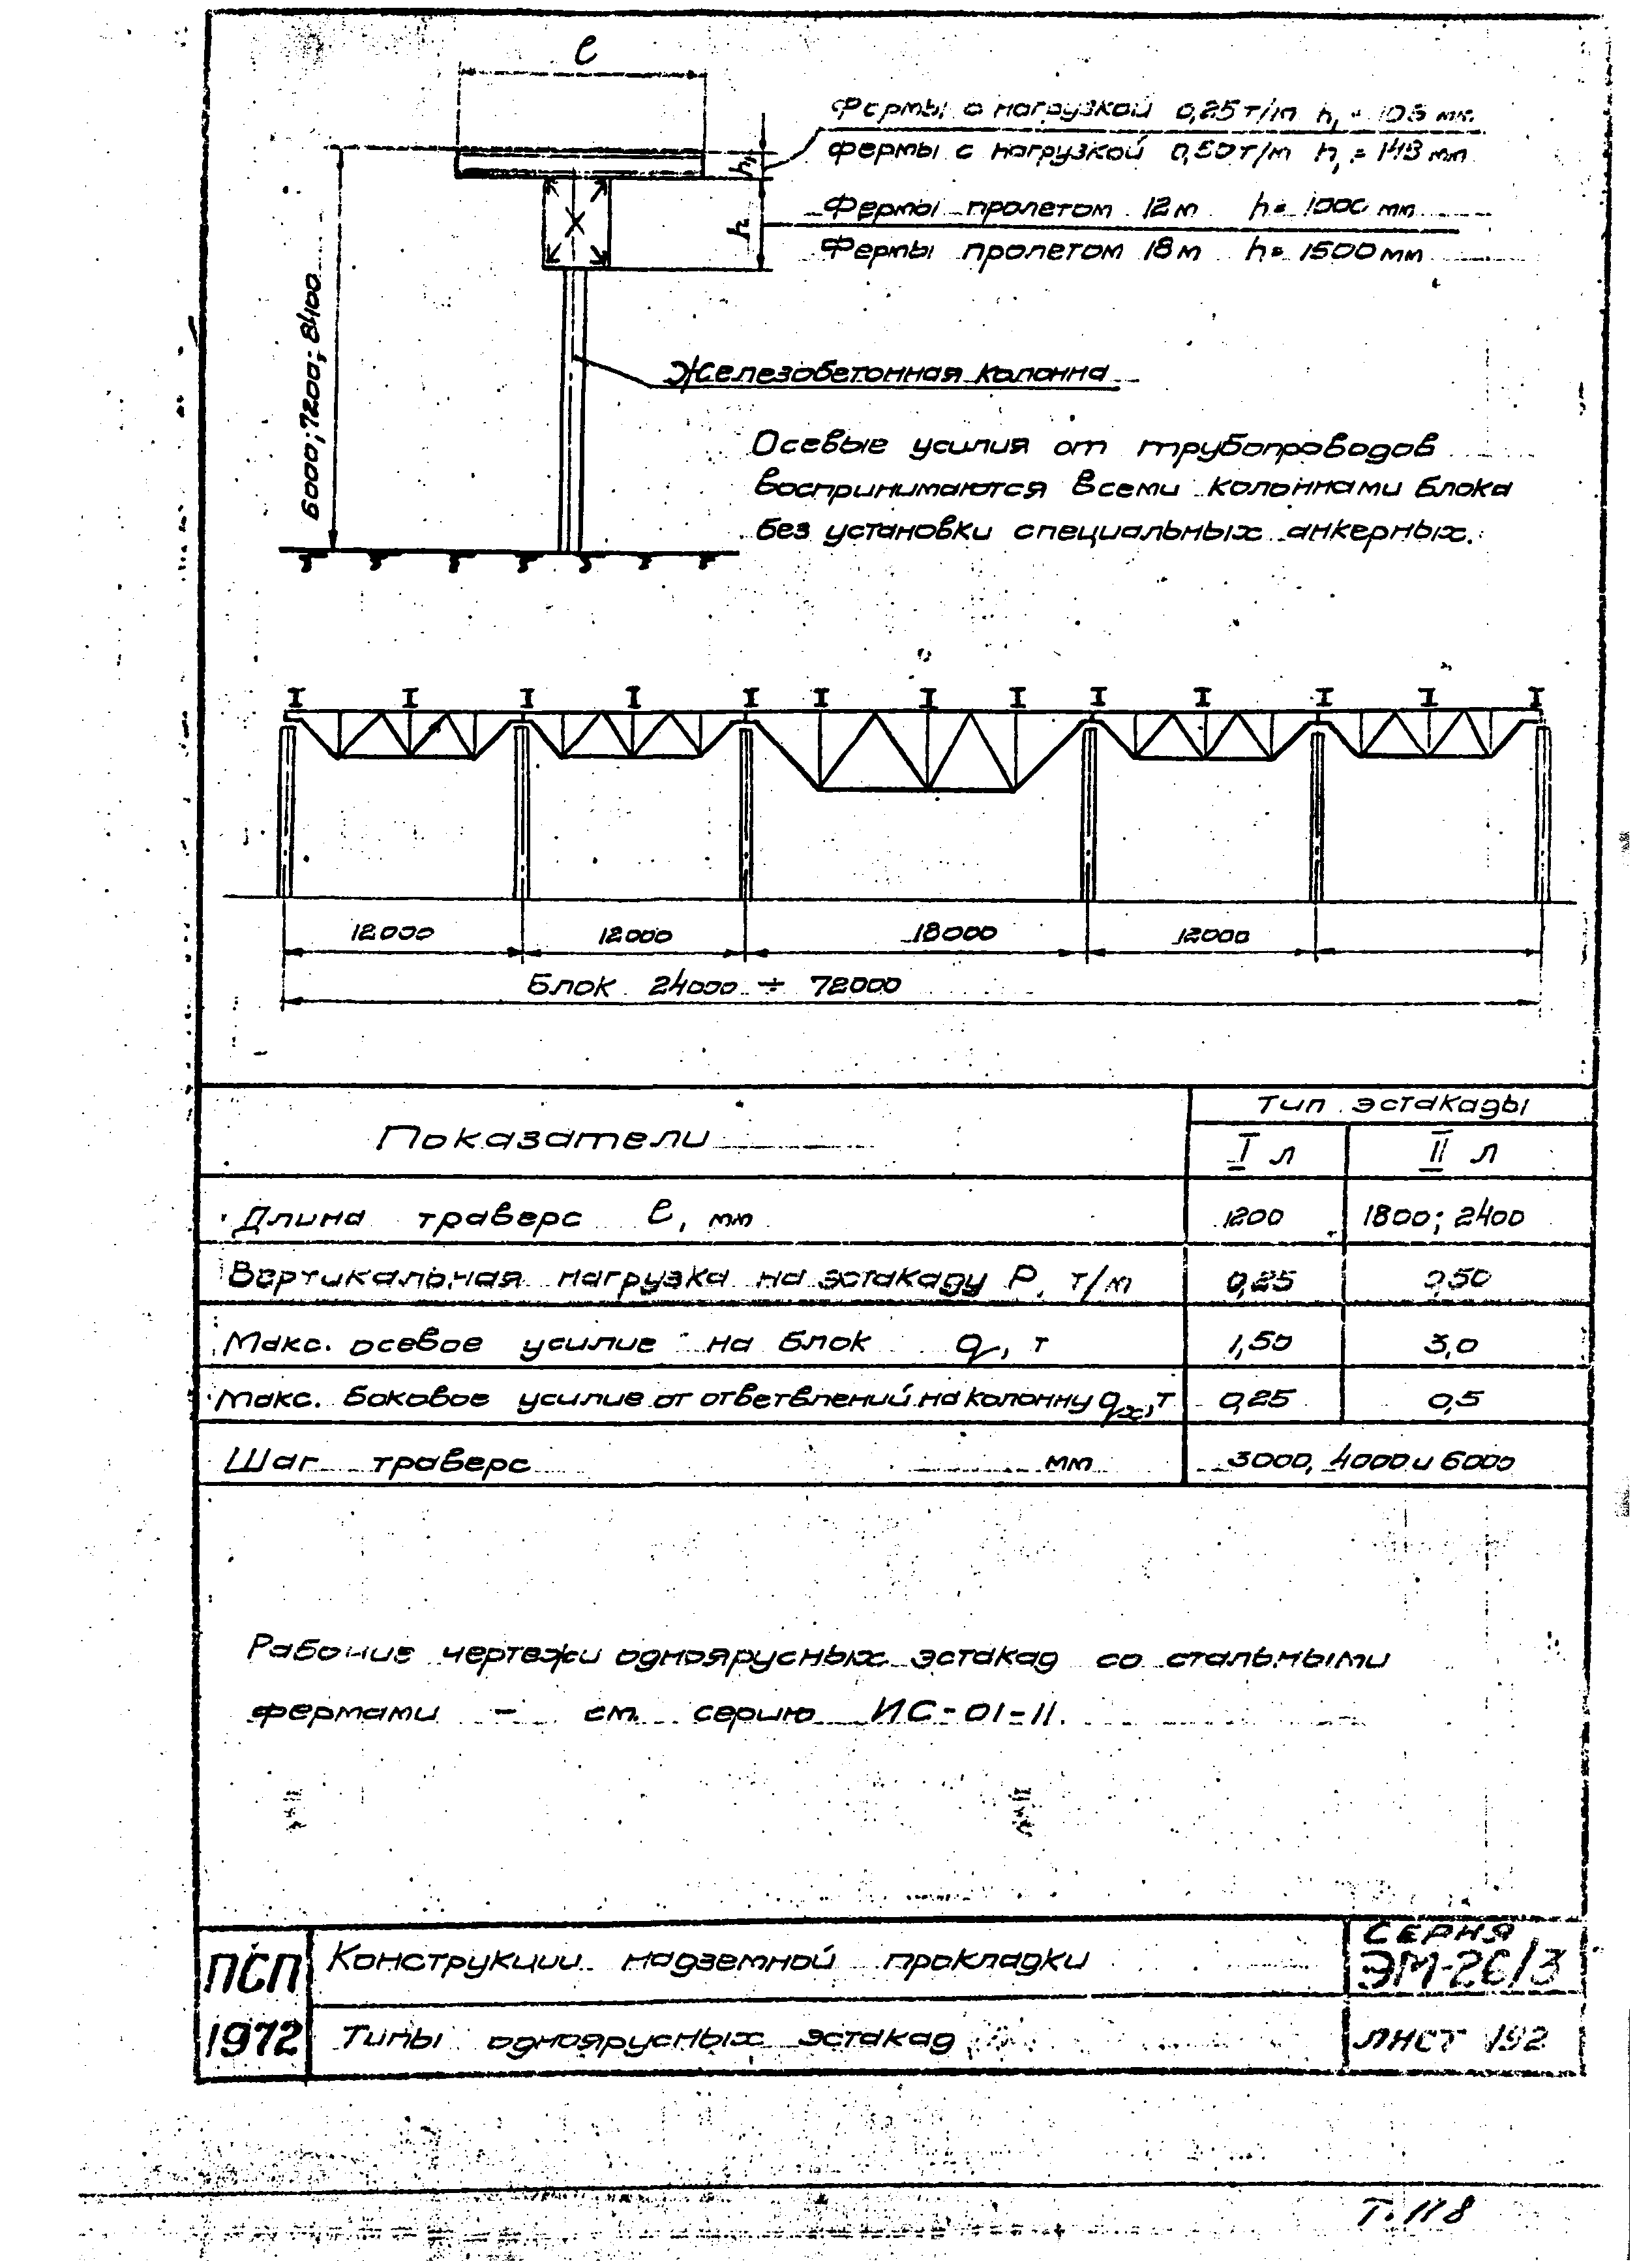 ℓ
Фермы с нагрузкой 0,25 т/м h₁ = 106 мм
фермы с нагрузкой 0,50 т/м h₁ = 148 мм
Фермы пролетом 12 м h = 1000 мм
Фермы пролетом 18 м h = 1500 мм
h₁
h
6000; 7200; 8400
Железобетонная колонна
Осевые усилия от трубопроводов
воспринимаются всеми колоннами блока
без установки специальных анкерных.
12000 12000 18000 12000
Блок 24000 ÷ 72000
Показатели
Тип эстакады
I л II л
Длина траверс ℓ, мм 1200 1800; 2400
Вертикальная нагрузка на эстакаду P, т/м 0,25 0,50
Макс. осевое усилие на блок q, т 1,50 3,0
Макс. боковое усилие от ответвлений на колонну qx, т 0,25 0,5
Шаг траверс мм 3000, 4000 и 6000
Рабочие чертежи одноярусных эстакад со стальными
фермами - см. серию ИС-01-11.
ПСП
1972
Конструкции надземной прокладки
Типы одноярусных эстакад
СЕРИЯ
ЭМ-26/3
ЛИСТ 192
Т.118